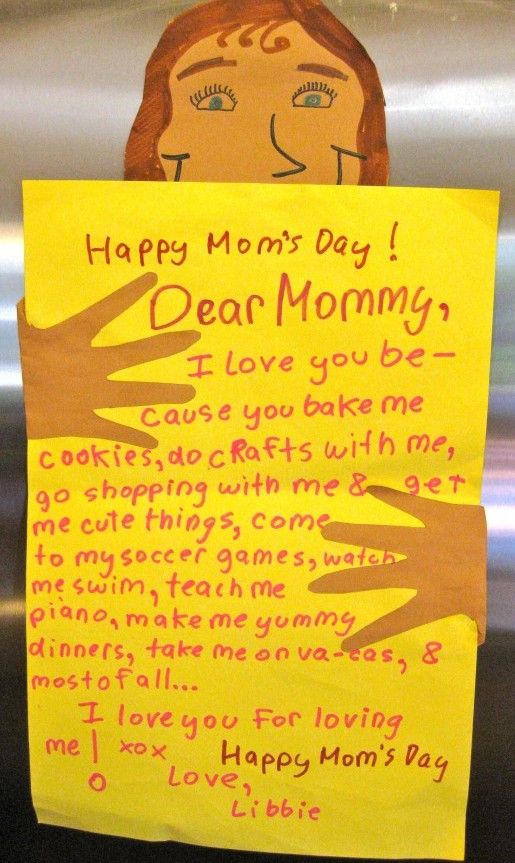 Happy Mom's Day!
Dear Mommy,
I love you be-
cause you bake me
cookies, do cRafts with me,
go shopping with me & get
me cute things, come
to my soccer games, watch
me swim, teach me
piano, make me yummy
dinners, take me on va-cas, &
most of all...
I love you for loving
me! xox
Happy Mom's Day
Love,
Libbie